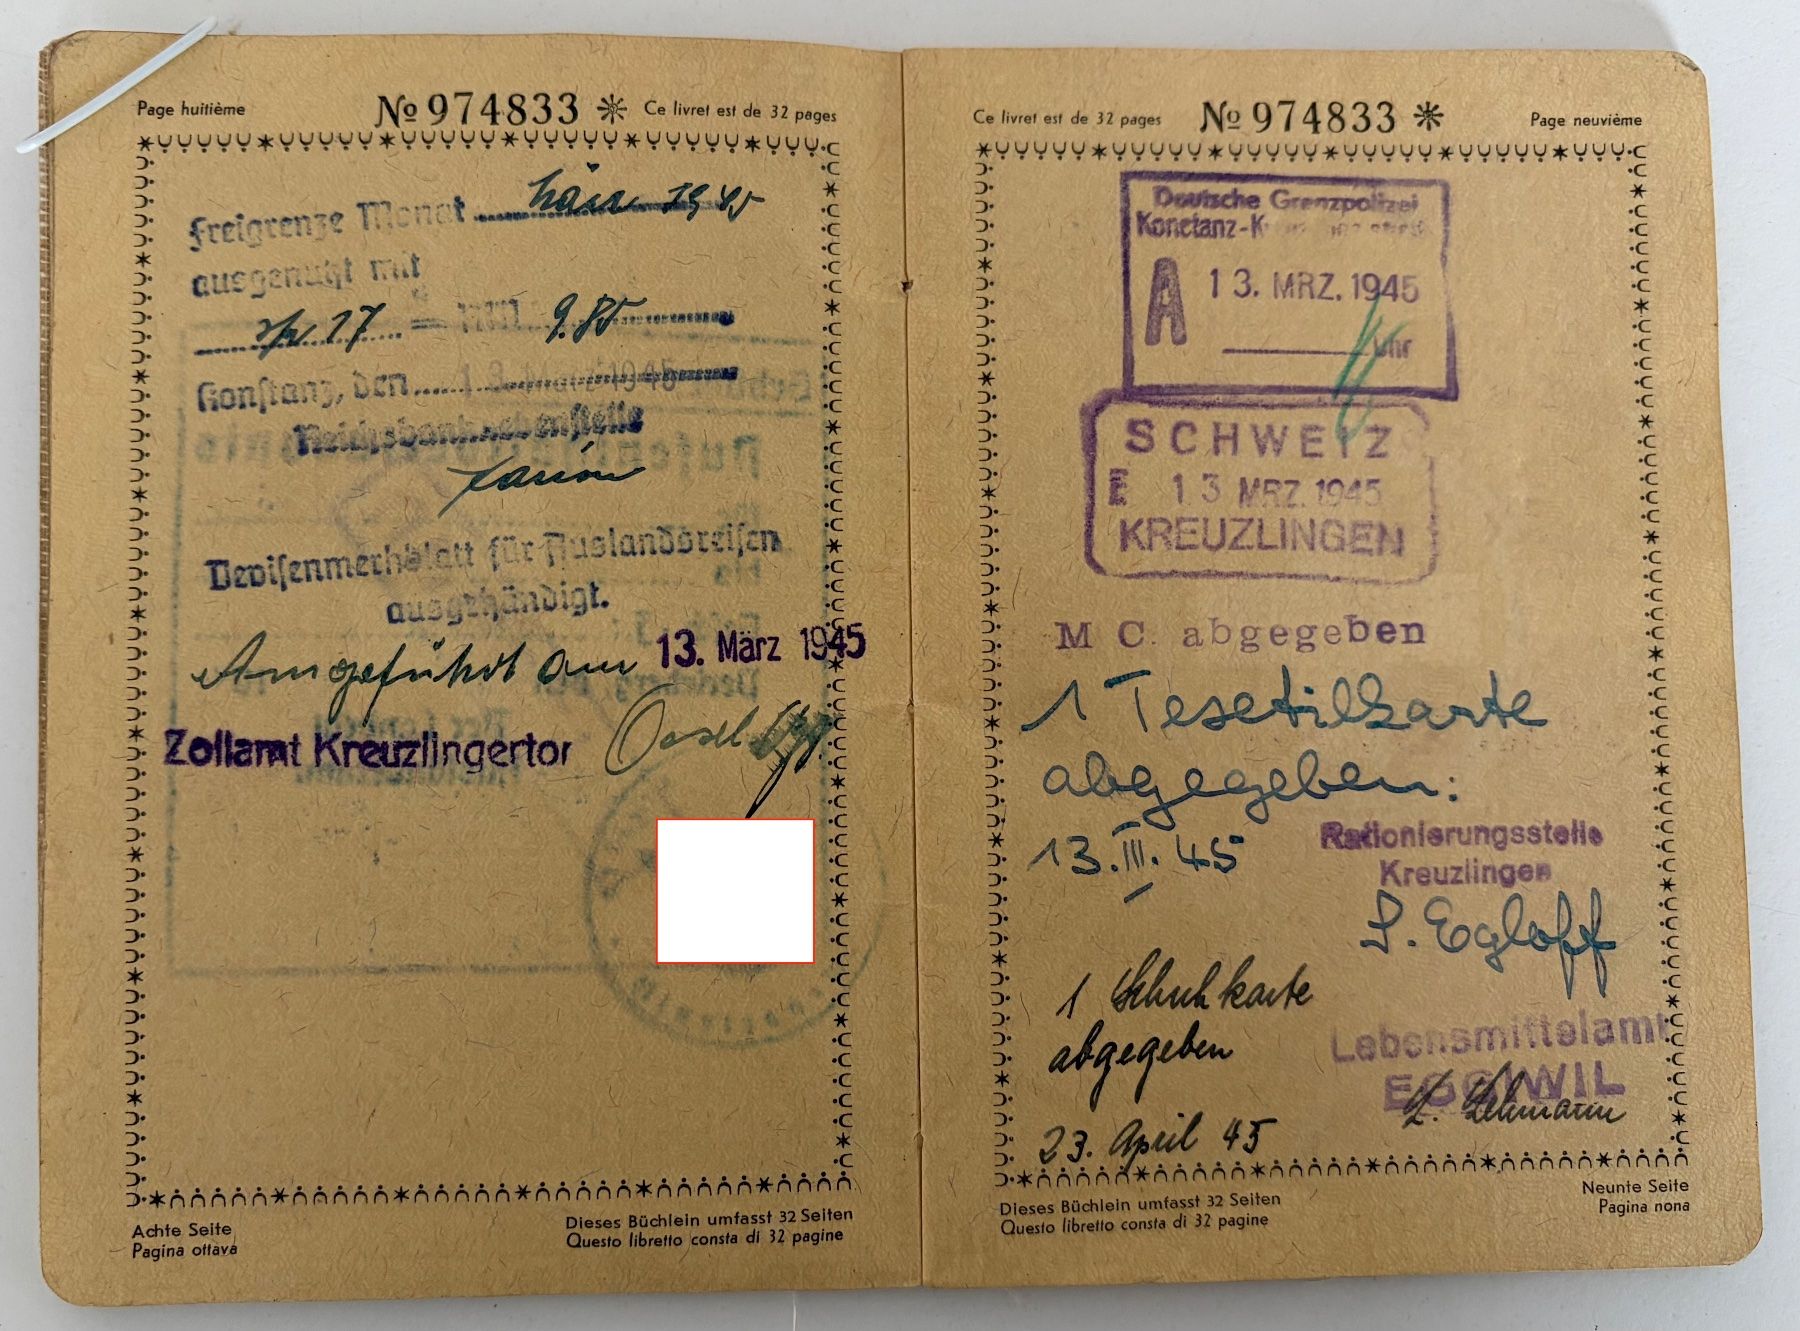 Page huitième
№ 974833
Ce livret est de 32 pages
Freigrenze Monat März 1945
ausgenutzt mit
sfr 17 = RM 9.85
Konstanz, den 13. März 1945
Reichsbanknebenstelle
Devisenmerkblatt für Auslandsreisen
ausgehändigt.
Ausgeführt am 13. März 1945
Zollamt Kreuzlingertor
Achte Seite
Pagina ottava
Dieses Büchlein umfasst 32 Seiten
Questo libretto consta di 32 pagine
Ce livret est de 32 pages
№ 974833
Page neuvième
Deutsche Grenzpolizei
Konstanz-
A 13. MRZ. 1945
Uhr
SCHWEIZ
E 13 MRZ. 1945
KREUZLINGEN
M C. abgegeben
1 Tesetilkarte
abgegeben:
13. III. 45
Rationierungsstelle
Kreuzlingen
S. Egloff
1 Schuhkarte
abgegeben
Lebensmittelamt
EGGIWIL
Lehmann
23. April 45
Dieses Büchlein umfasst 32 Seiten
Questo libretto consta di 32 pagine
Neunte Seite
Pagina nona